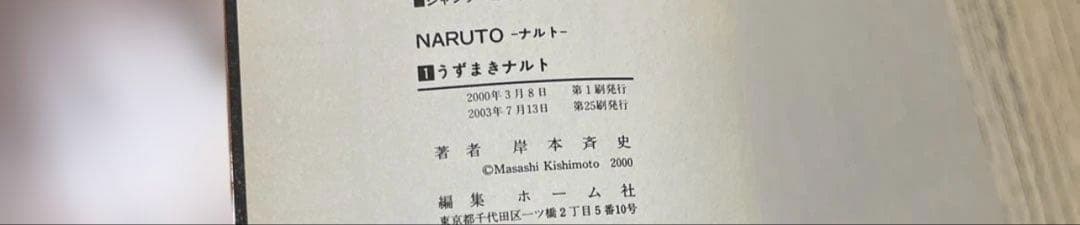 NARUTO -ナルト-
1 うずまきナルト
2000年3月8日 第1刷発行
2003年7月13日 第25刷発行
著者 岸本斉史
©Masashi Kishimoto 2000
編集 ホーム社
東京都千代田区一ツ橋2丁目5番10号